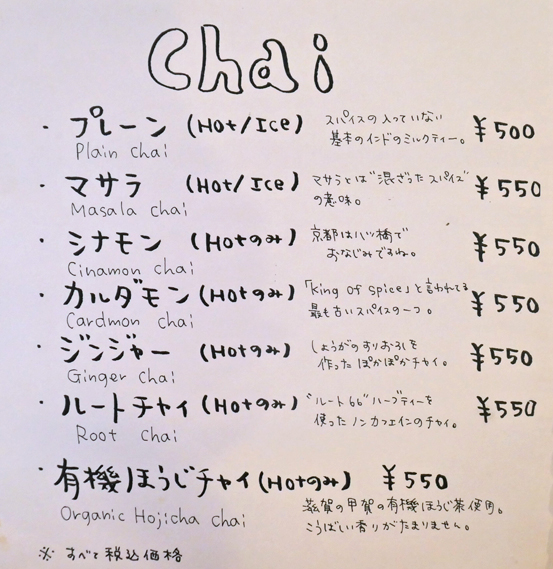 Chai
・プレーン (Hot/Ice) スパイスの入っていない ¥500
基本のインドのミルクティー。
Plain chai
・マサラ (Hot/Ice) マサラとは"混ざったスパイス" ¥550
の意味。
Masala chai
・シナモン (Hotのみ) 京都は八ツ橋で ¥550
おなじみですね。
Cinamon chai
・カルダモン (Hotのみ) 「king of spice」と言われてる ¥550
最も古いスパイスの一つ。
Cardmon chai
・ジンジャー (Hotのみ) しょうがのすりおろしを ¥550
作ったぽかぽかチャイ。
Ginger chai
・ルートチャイ (Hotのみ) "ルート66"ハーブティーを ¥550
使ったノンカフェインのチャイ。
Root chai
・有機ほうじチャイ (Hotのみ) ¥550
滋賀の甲賀の有機ほうじ茶使用。
Organic Hojicha chai
こうばしい香りがたまりません。
※ すべて税込価格